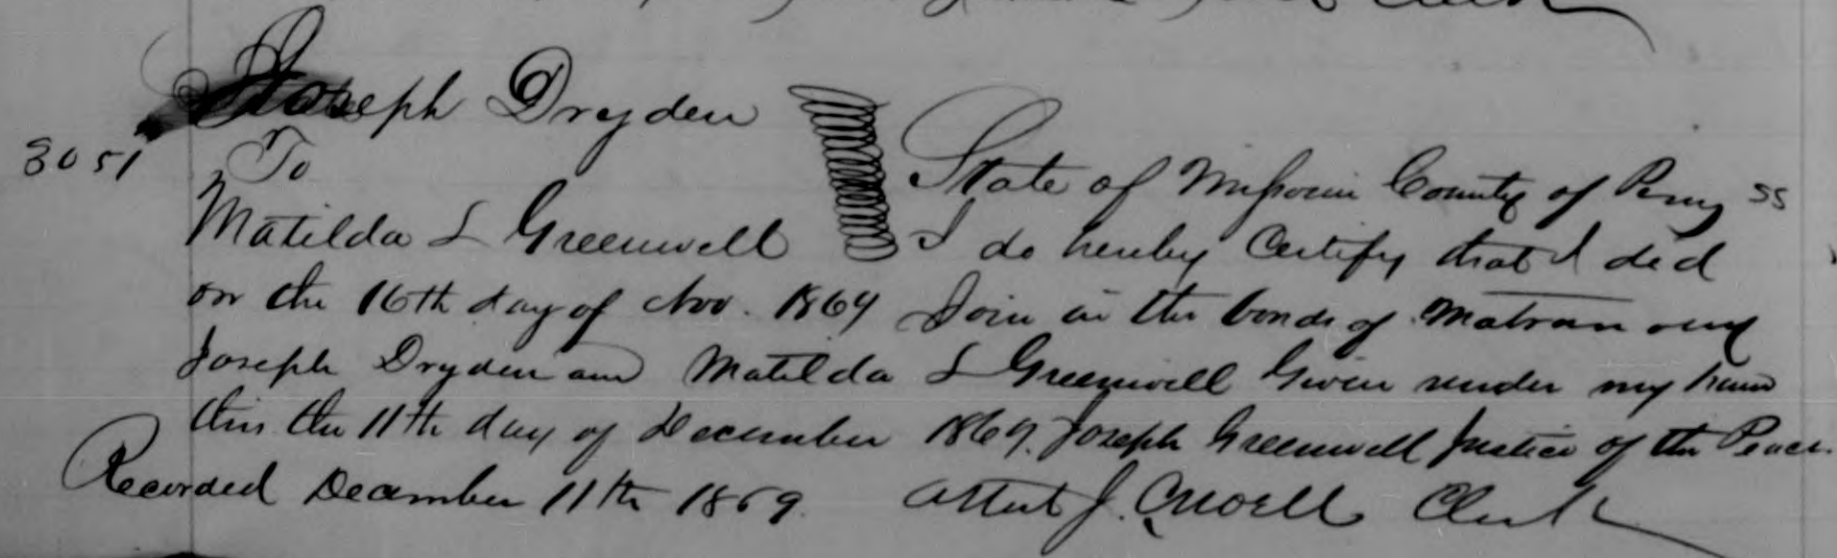 Joseph Dryden
3051
To
Matilda L Greenwell
State of Missouri County of Perry ss
I do hereby Certify that I did
on the 16th day of Nov. 1869 Join in the bonds of Matrimony
Joseph Dryden and Matilda L Greenwell Given under my hand
this the 11th day of December 1869. Joseph Greenwell Justice of the Peace.
Recorded December 11th 1869. Attest J. Clerk